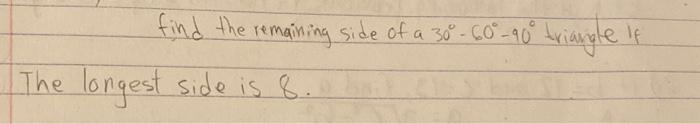 find the remaining side of a 30°-60°-90° triangle If
The longest side is 8.